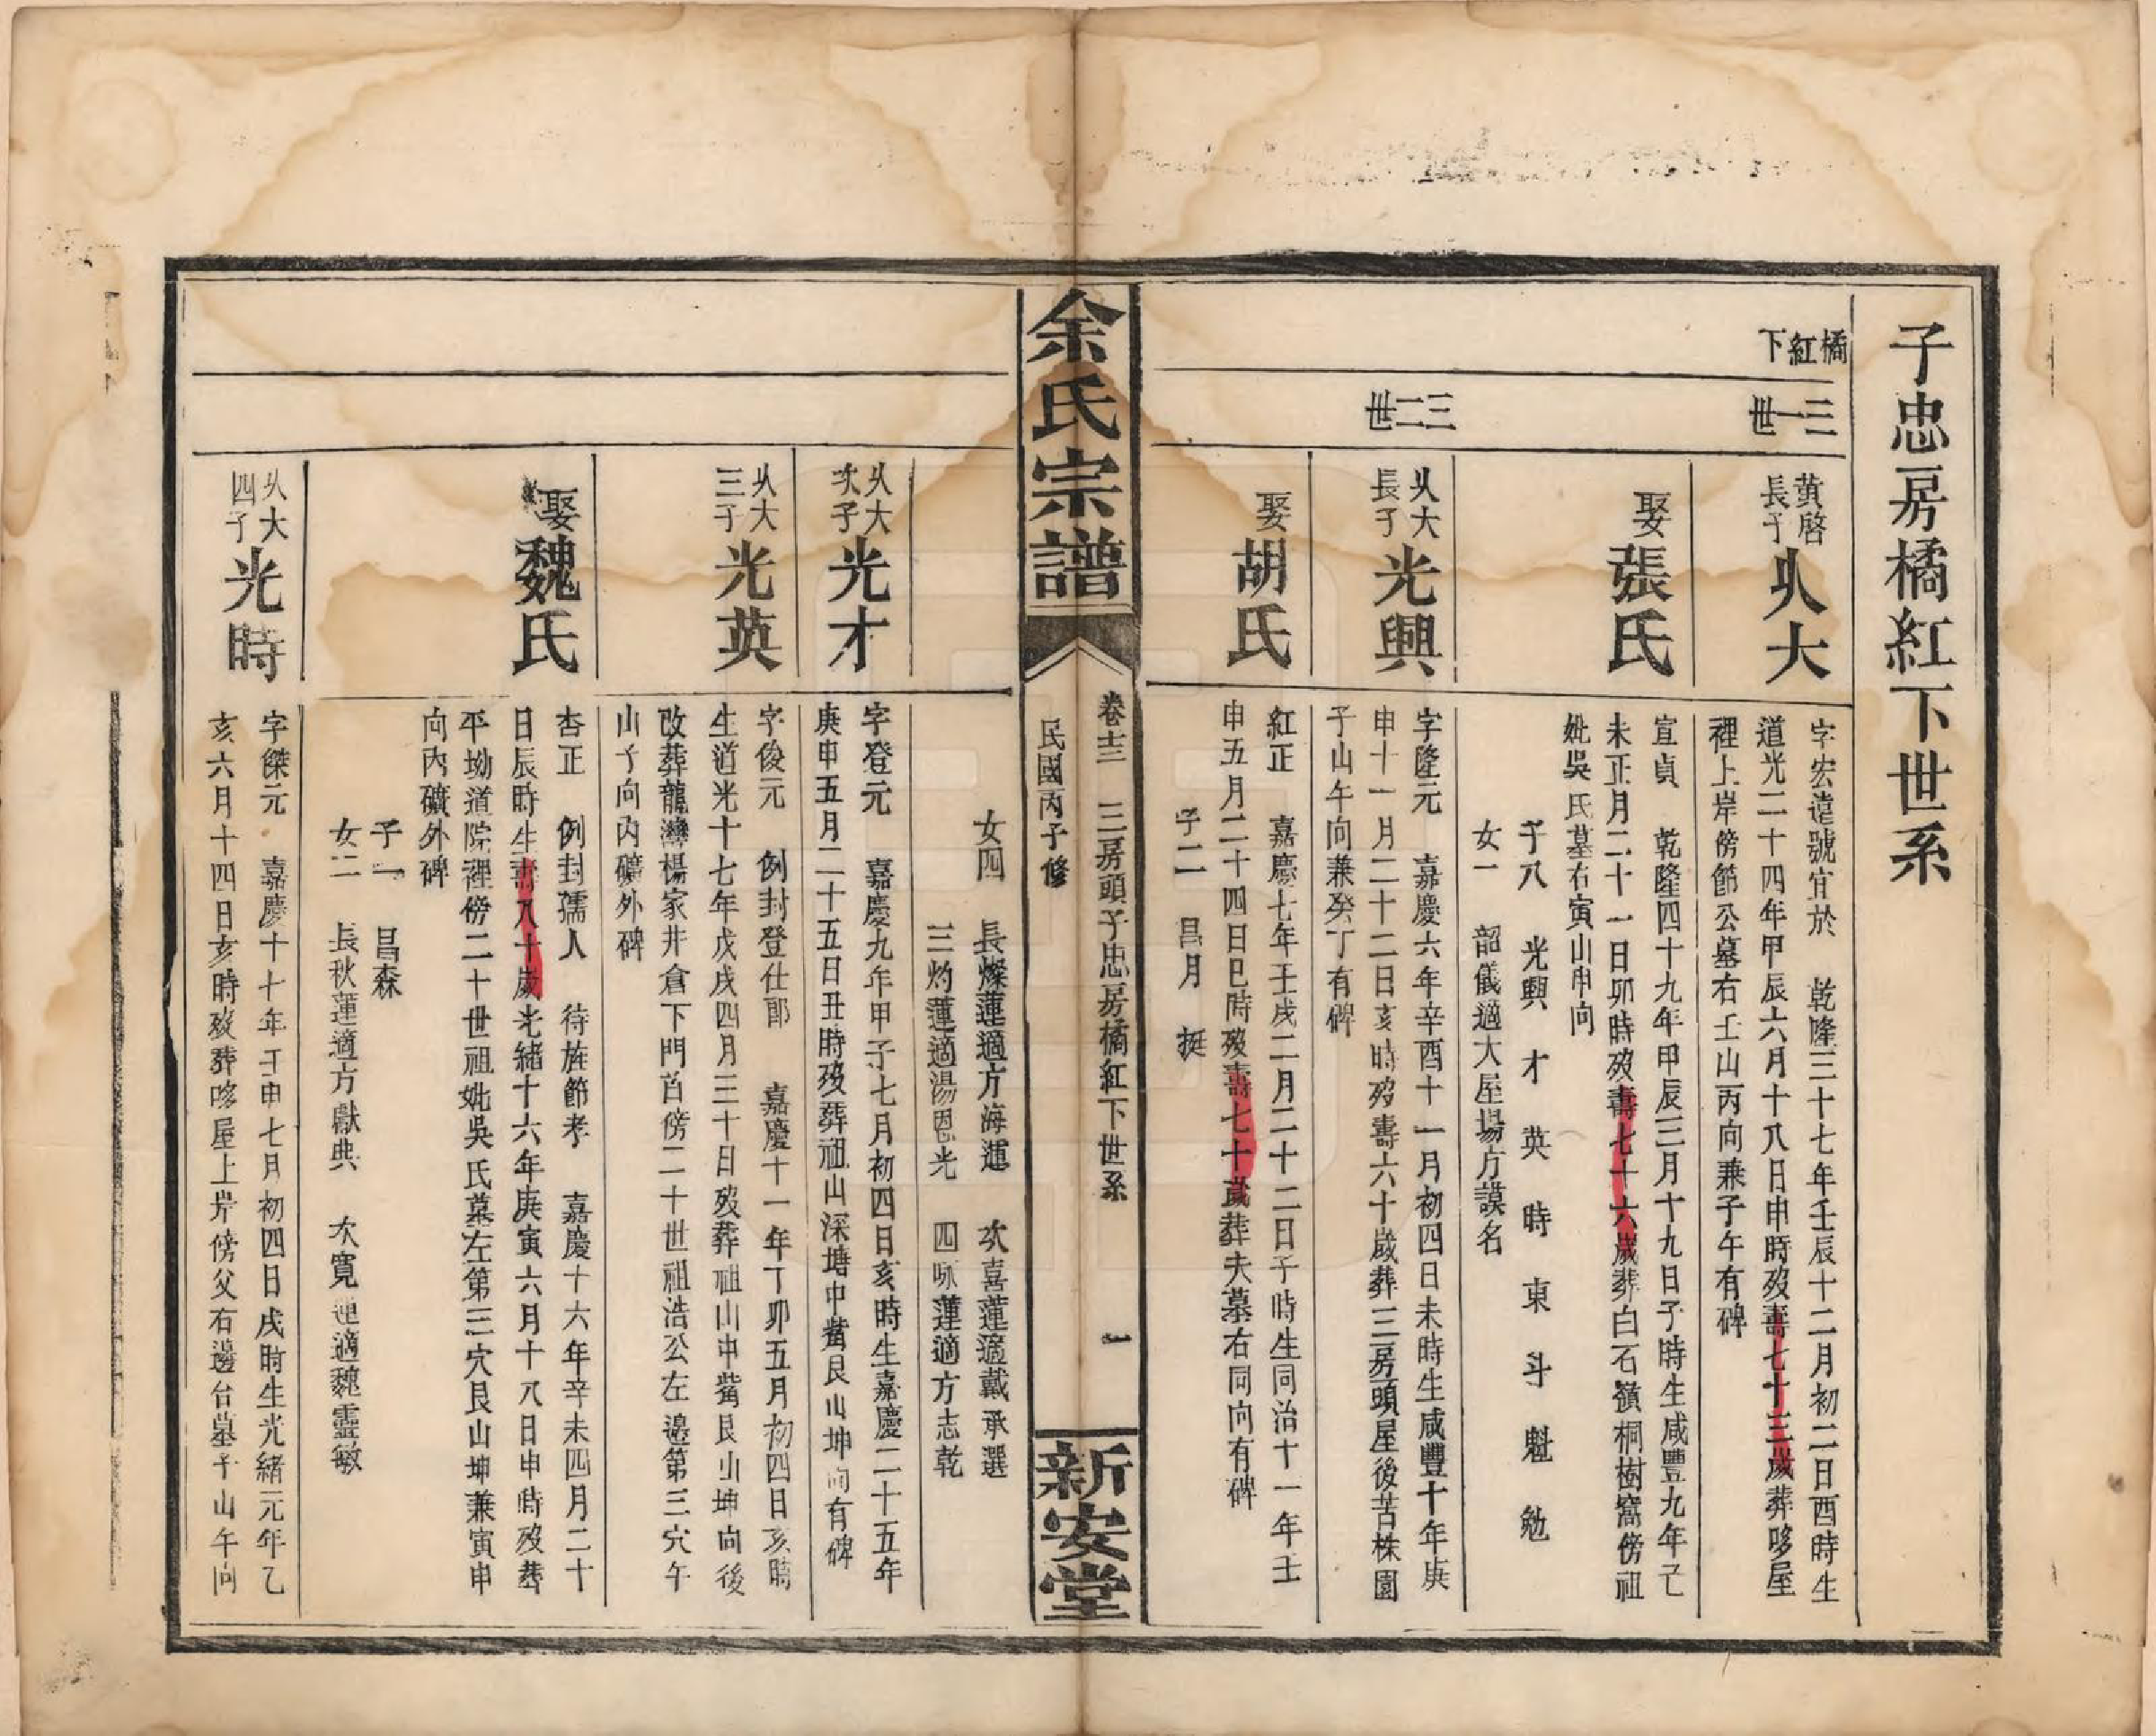 子忠房橘紅下世系
橘紅下
三一世
黃啓長子
火大
字宏遠號宜於 乾隆三十七年壬辰十二月初二日酉時生
道光二十四年甲辰六月十八日申時歿壽七十三歲葬哆屋
裡上岸傍節公墓右壬山丙向兼子午有碑
娶
張氏
宜貞 乾隆四十九年甲辰三月十九日子時生咸豐九年己
未正月二十一日卯時歿壽七十六歲葬白石嶺桐樹窩傍祖
妣吳氏墓右寅山申向
子八 光興 才 英 時 東 斗 魁 勉
女一 韶儀適大屋場方謨名
三二世
火大長子
光興
字隆元 嘉慶六年辛酉十一月初四日未時生咸豐十年庚
申十一月二十二日亥時歿壽六十歲葬三房頭屋後苦株園
子山午向兼癸丁有碑
娶
胡氏
紅正 嘉慶七年壬戌二月二十二日子時生同治十一年壬
申五月二十四日巳時歿壽七十歲葬夫墓右同向有碑
子二 昌月 挺
余氏宗譜
卷十三 三房頭子忠房橘紅下世系 一
民國丙子修
新安堂
女四 長燦蓮適方海運 次喜蓮適戴承選
三灼蓮適湯恩光 四咏蓮適方志乾
火大次子
光才
字登元 嘉慶九年甲子七月初四日亥時生嘉慶二十五年
庚申五月二十五日丑時歿葬祖山深塘中觜艮山坤向有碑
火大三子
光英
字俊元 例封登仕郎 嘉慶十一年丁卯五月初四日亥時
生道光十七年戊戌四月三十日歿葬祖山中觜艮山坤向後
改葬龍灣楊家井倉下門首傍二十世祖浩公左邉第三穴午
山子向內礦外碑
娶
魏氏
杏正 例封孺人 待旌節孝 嘉慶十六年辛未四月二十
日辰時生壽八十歲光緒十六年庚寅六月十八日申時歿葬
平坳道院裡傍二十世祖妣吳氏墓左第三穴艮山坤兼寅申
向內礦外碑
子一 昌森
女二 長秋蓮適方獻典 次寬蓮適魏靈敏
火大四子
光時
字傑元 嘉慶十七年壬申七月初四日戌時生光緒元年乙
亥六月十四日亥時歿葬哆屋上岸傍父右邊台墓子山午向